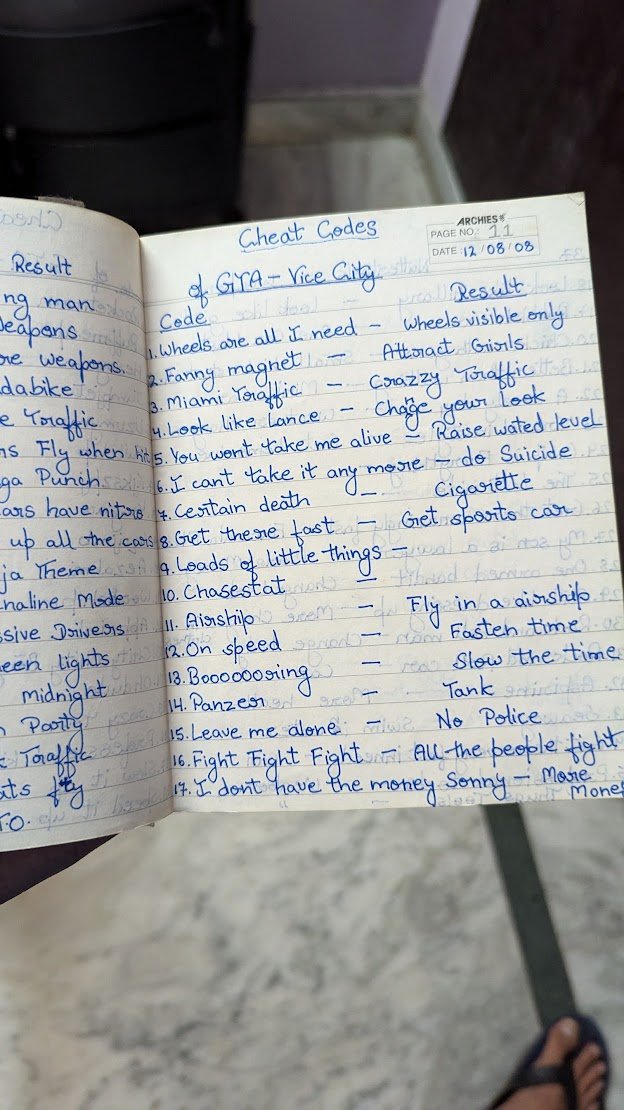 Result
ng man
eapons
re weapons.
dabike
e Traffic
ns Fly when hit
ga Punch
ars have nitro
up all the cars
ja Theme
naline Mode
ssive Drivers
een lights
midnight
n Party
Traffic
ats fly
T.O.
ARCHIES
PAGE NO.: 11
DATE: 12/08/08
Cheat Codes
of GTA - Vice City
Code Result
1. Wheels are all I need - Wheels visible only
2. Fanny magnet - Attract Girls
3. Miami Traffic - Crazzy Traffic
4. Look like Lance - Change your Look
5. You wont take me alive - Raise wated level
6. I cant take it any more - do Suicide
7. Certain death - Cigarette
8. Get there fast - Get sports car
9. Loads of little things -
10. Chasestat -
11. Airship - Fly in a airship
12. On speed - Faster time
13. Booooooring - Slow the time
14. Panzer - Tank
15. Leave me alone - No Police
16. Fight Fight Fight - All the people fight
17. I dont have the money Sonny - More
Money